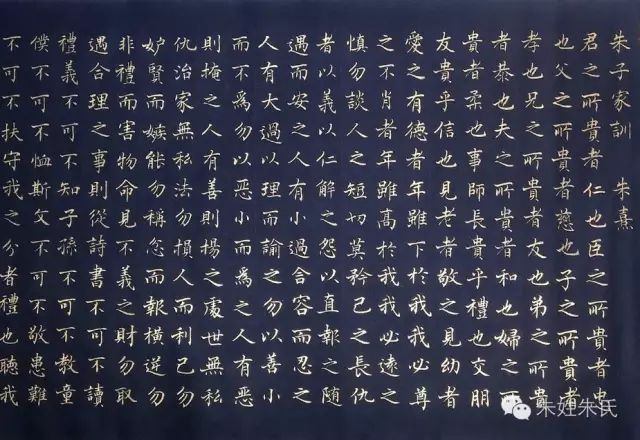 朱子家訓 朱熹
君之所貴者仁也臣之所貴者忠
也父之所貴者慈也子之所貴者
孝也兄之所貴者友也弟之所貴
者恭也夫之所貴者和也婦之所
貴者柔也事師長貴乎禮也交朋
友貴乎信也見老者敬之見幼者
愛之有德者年雖下於我我必尊
之不肖者年雖高於我我必遠之
慎勿談人之短切莫矜己之長仇
者以義以仁解之怨以直報之隨
遇而安之人有小過含容而忍之
人有大過以理而諭之勿以善小
而不為勿以惡小而為之人有惡
則掩之人有善則揚之處世無私
仇治家無私法勿損人而利己勿
妒賢而嫉能勿稱忿而報橫逆勿
非禮而害物命見不義之財勿取
遇合理之事則從詩書不可不讀
禮義不可不知子孫不可不教童
僕不可不恤斯文不可不敬患難
不可不扶守我之分者禮也聽我
朱姓朱氏